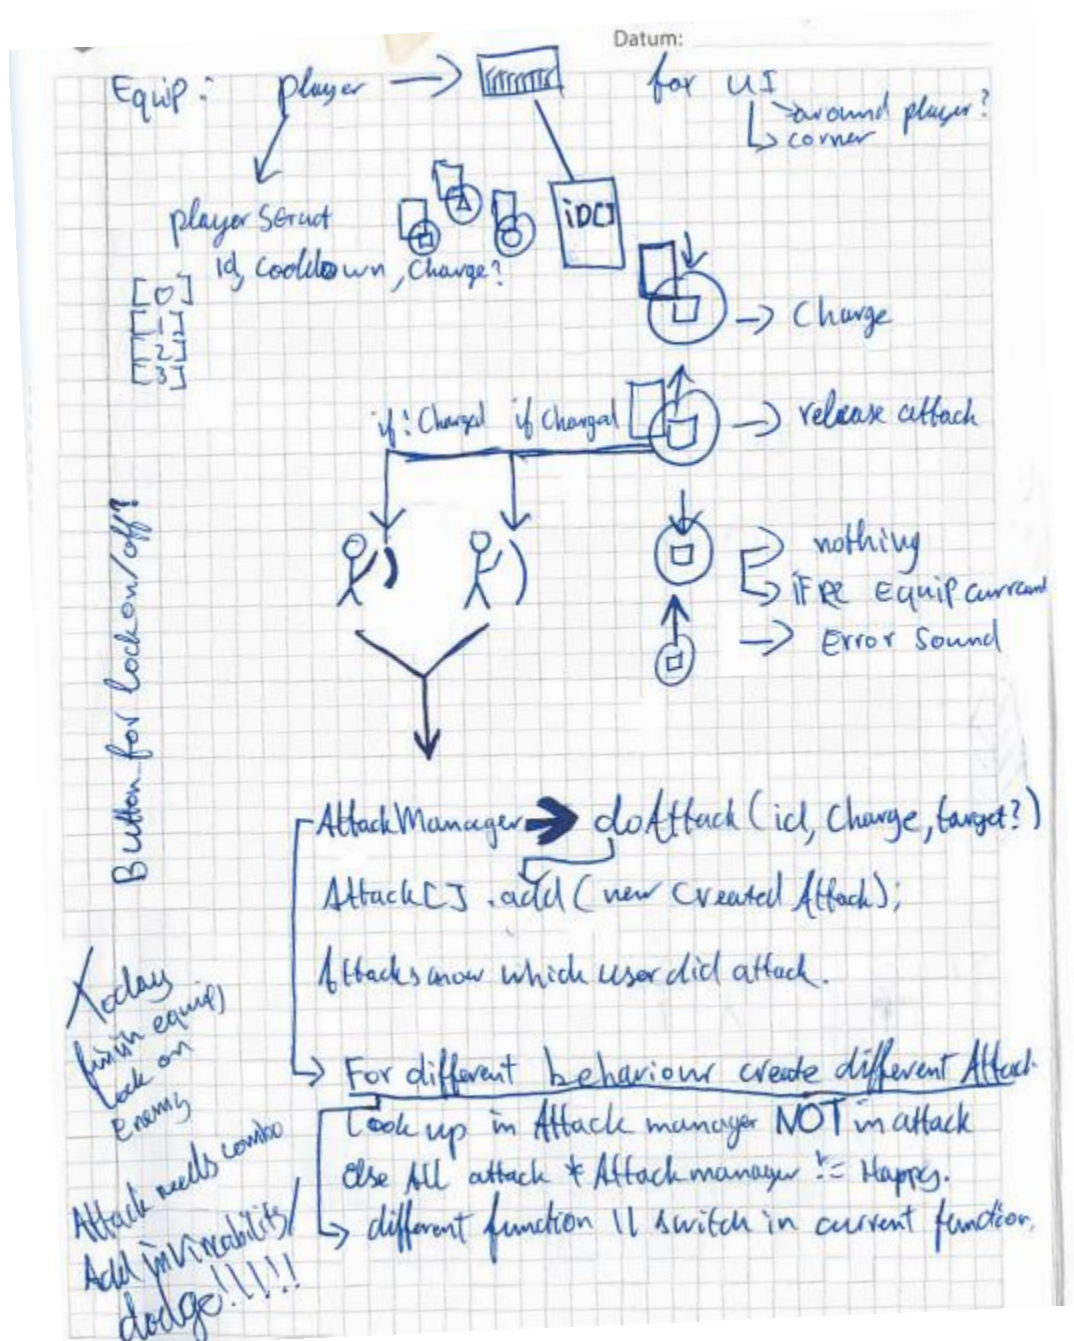 Datum:
Equip: player → for UI
around player?
corner
player Struct
id, cooldown, Charge?
iD[]
[0]
[1]
[2]
[3]
→ Charge
if !Charged if Charged
→ release attack
nothing
if RE Equip current
→ Error Sound
Button for lock on/off?
AttackManager → doAttack (id, Charge, target?)
Attack[] .add (new Created Attack);
Attacks now which user did attack.
For different behaviour create different Attack.
Look up in Attack manager NOT in attack
else All attack * Attackmanager != Happy.
different function || switch in current function.
Today
finish equip
Lock on
Enemy
Attack needs combo
Add invincability/
dodge!!!!!!